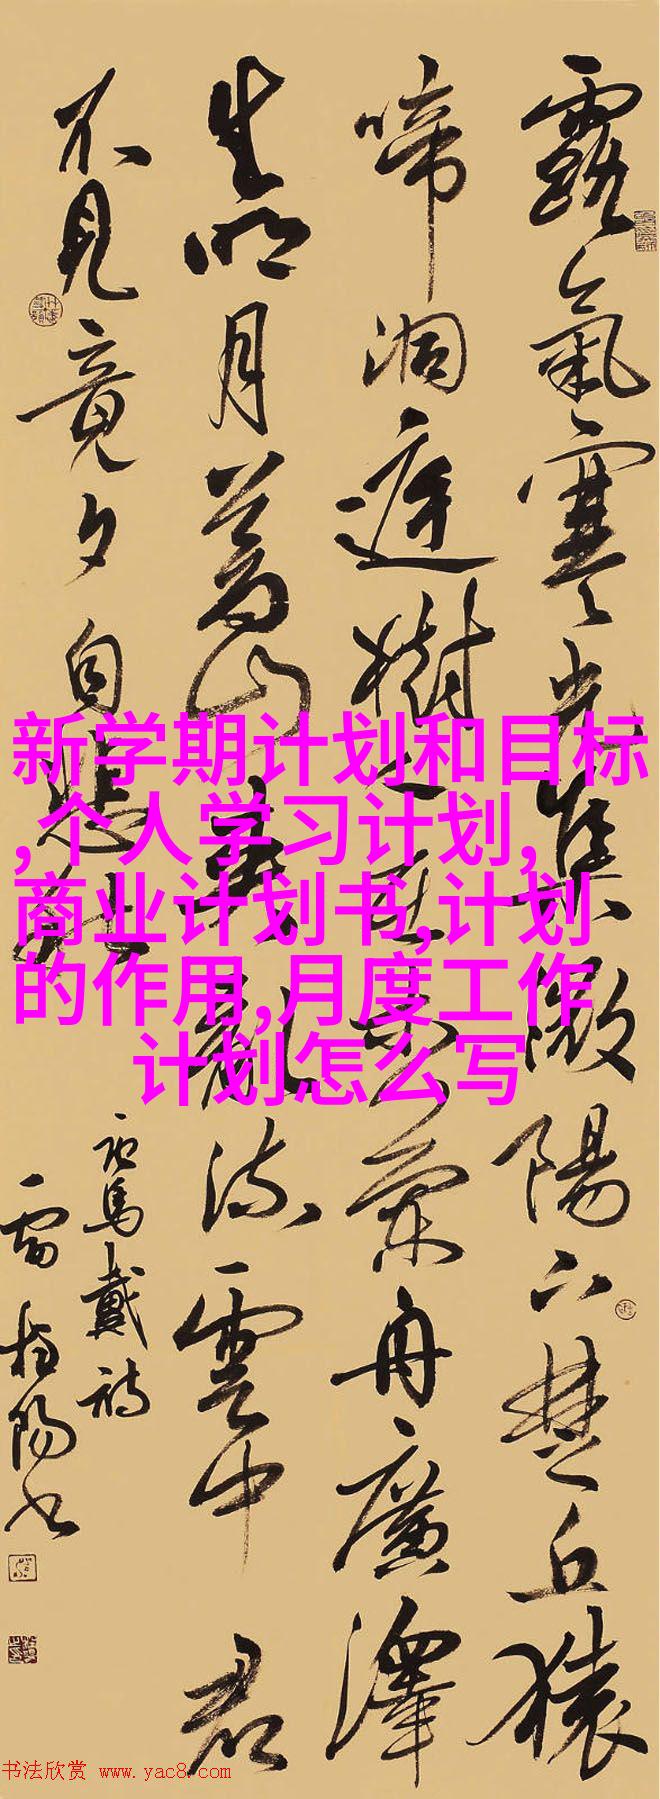 露氣寒光集微陽下楚丘猿
啼洞庭樹人在木蘭舟廣澤
生明月蒼山夾亂流雲中君
不見竟夕自悲秋
馬戴詩
雷陽书
新学期计划和目标
,个人学习计划,
商业计划书,计划
的作用,月度工作
计划怎么写
书法欣赏 www.yac8.com